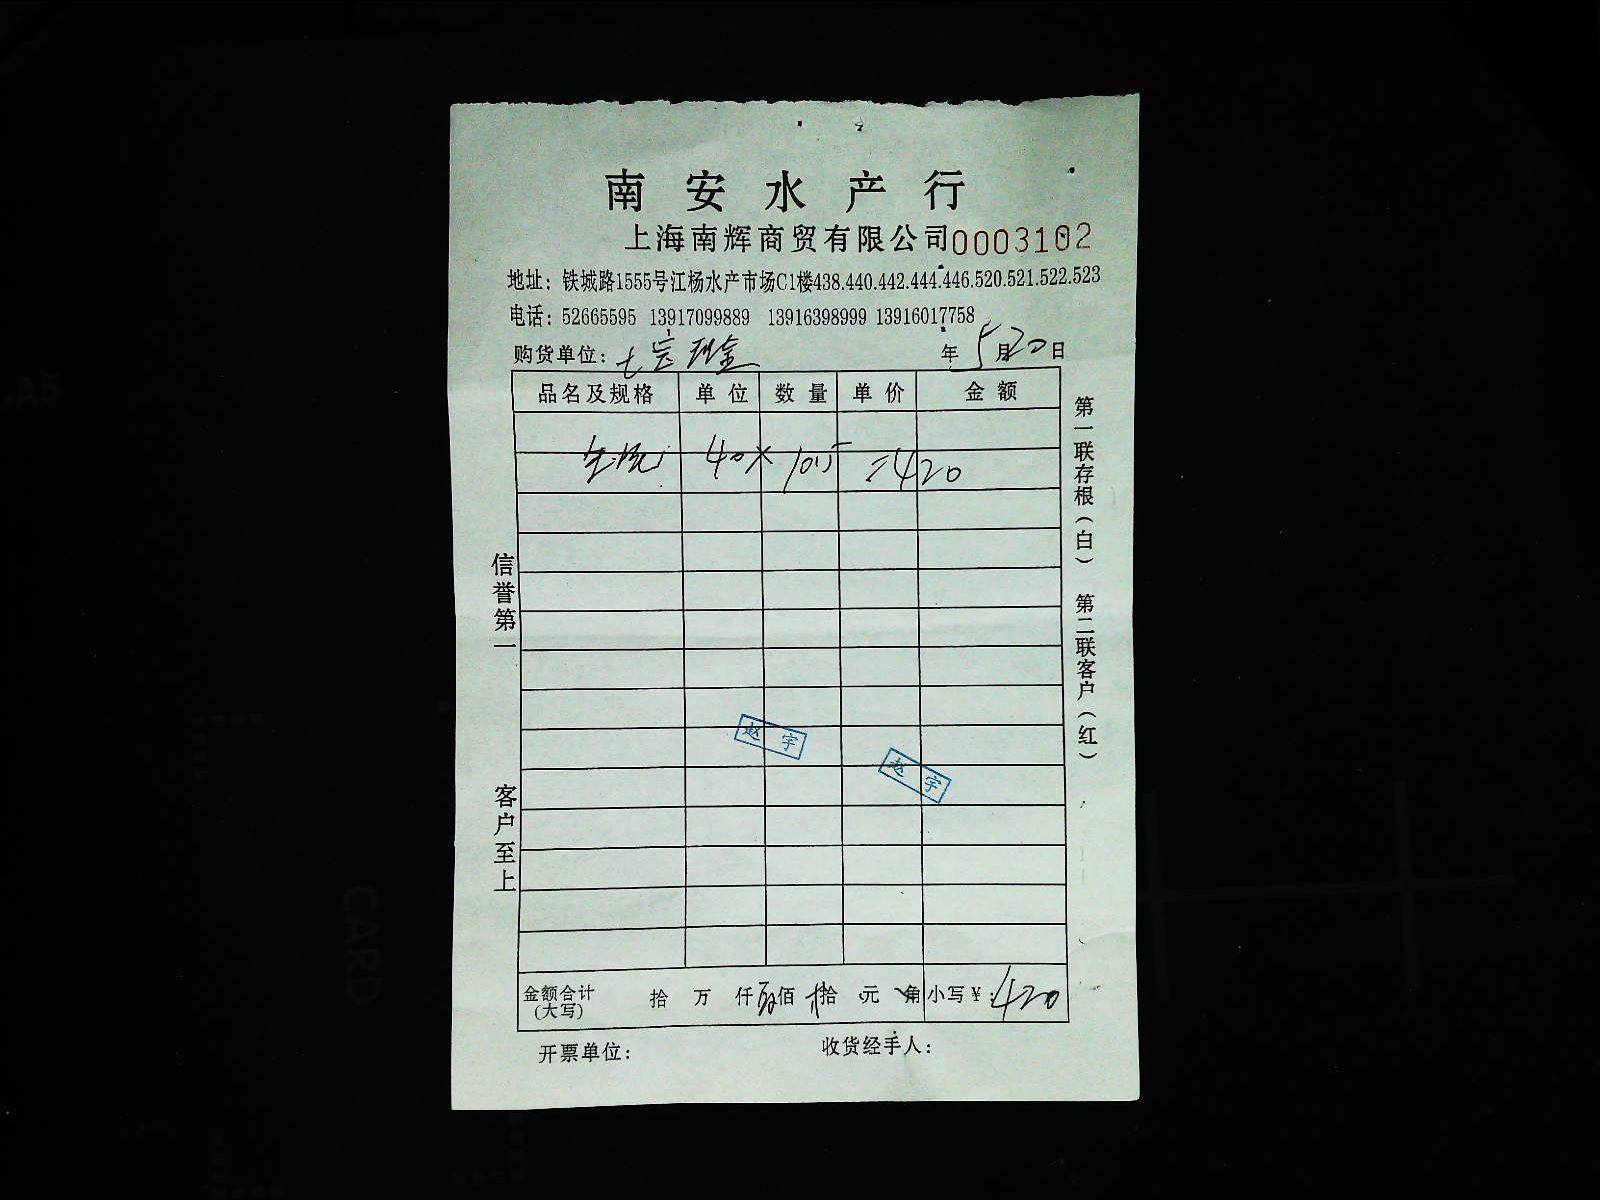 南安水产行
上海南辉商贸有限公司 0003102
地址：铁城路1555号江杨水产市场C1楼438.440.442.444.446.520.521.522.523
电话：52665595 13917099889 13916398999 13916017758
购货单位： 年 5月20日
品名及规格 单位 数量 单价 金额
40× =420
信誉第一
客户至上
第一联存根（白） 第二联客户（红）
赵宇
赵宇
金额合计(大写) 拾 万 仟 佰 拾 元 角 小写¥：420
开票单位： 收货经手人：
A5
CARD